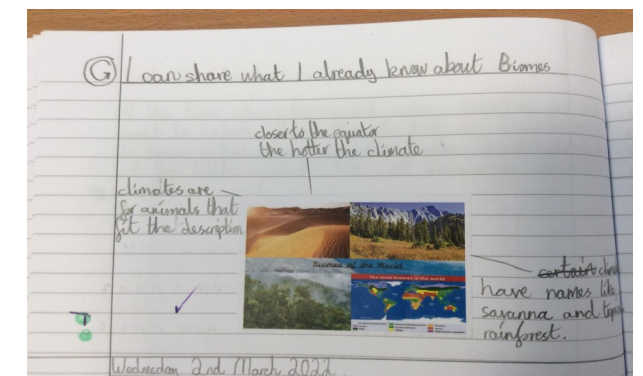 G I can share what I already know about Biomes
closer to the equator
the hotter the climate
climates are
for animals that
fit the description
Biomes of the World
The main biomes of the world
certain
have names like
savanna and
rainforest.
Wednesday 2nd March 2022